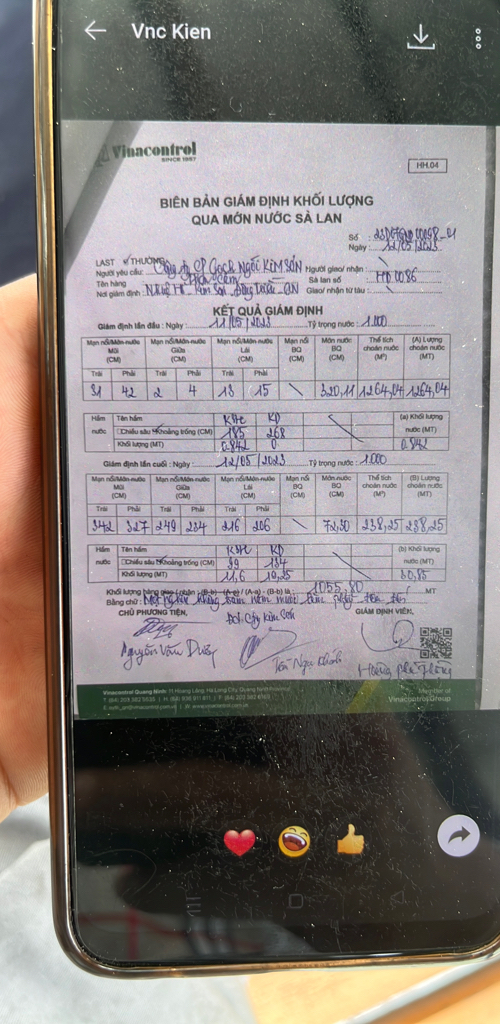 Vnc Kien
Vinacontrol
SINCE 1957
HH.04
BIÊN BẢN GIÁM ĐỊNH KHỐI LƯỢNG
QUA MỚN NƯỚC SÀ LAN
Số :
Ngày : 12/05/2023
LAST THƯỜNG
Người yêu cầu: Công ty CP Gạch Ngói KIM SƠN Người giao/ nhận :
Tên hàng Sà lan số : HD 0086
Nơi giám định : Kim Sơn Đông Triều QN Giao/ nhận từ tàu :
KẾT QUẢ GIÁM ĐỊNH
Giám định lần đầu : Ngày : 11/05/2023 Tỷ trọng nước : 1.000
Mạn nổi/Mớn nước Mũi (CM) Mạn nổi/Mớn nước Giữa (CM) Mạn nổi/Mớn nước Lái (CM) Mạn nổi BQ (CM) Mớn nước BQ (CM) Thể tích choán nước (M³) (A) Lượng choán nước (MT)
Trái Phải Trái Phải Trái Phải
31 42 2 4 13 15 \ 320,11 1264,04 1264,04
Hầm nước Tên hầm (a) Khối lượng nước (MT)
Chiều sâu Khoảng trống (CM) 185 268
Khối lượng (MT) 0.842 0 0.842
Giám định lần cuối : Ngày : 12/05/2023 Tỷ trọng nước : 1.000
Mạn nổi/Mớn nước Mũi (CM) Mạn nổi/Mớn nước Giữa (CM) Mạn nổi/Mớn nước Lái (CM) Mạn nổi BQ (CM) Mớn nước BQ (CM) Thể tích choán nước (M³) (B) Lượng choán nước (MT)
Trái Phải Trái Phải Trái Phải
342 327 249 234 216 206 \ 72,50 238,25 238,25
Hầm nước Tên hầm (b) Khối lượng nước (MT)
Chiều sâu Khoảng trống (CM) 39 134
Khối lượng (MT) 11,6 19,25 30,85
Khối lượng hàng giao / nhận : (B-b) - (A-a) / (A-a) - (B-b) là : 1055,80 MT
Bằng chữ : Một nghìn không trăm năm mươi lăm phẩy tám
CHỦ PHƯƠNG TIỆN, GIÁM ĐỊNH VIÊN,
Nguyễn Văn
Vinacontrol Quang Ninh: 11 Hoang Long, Ha Long City, Quang Ninh Province
Member of
VinacontrolGroup